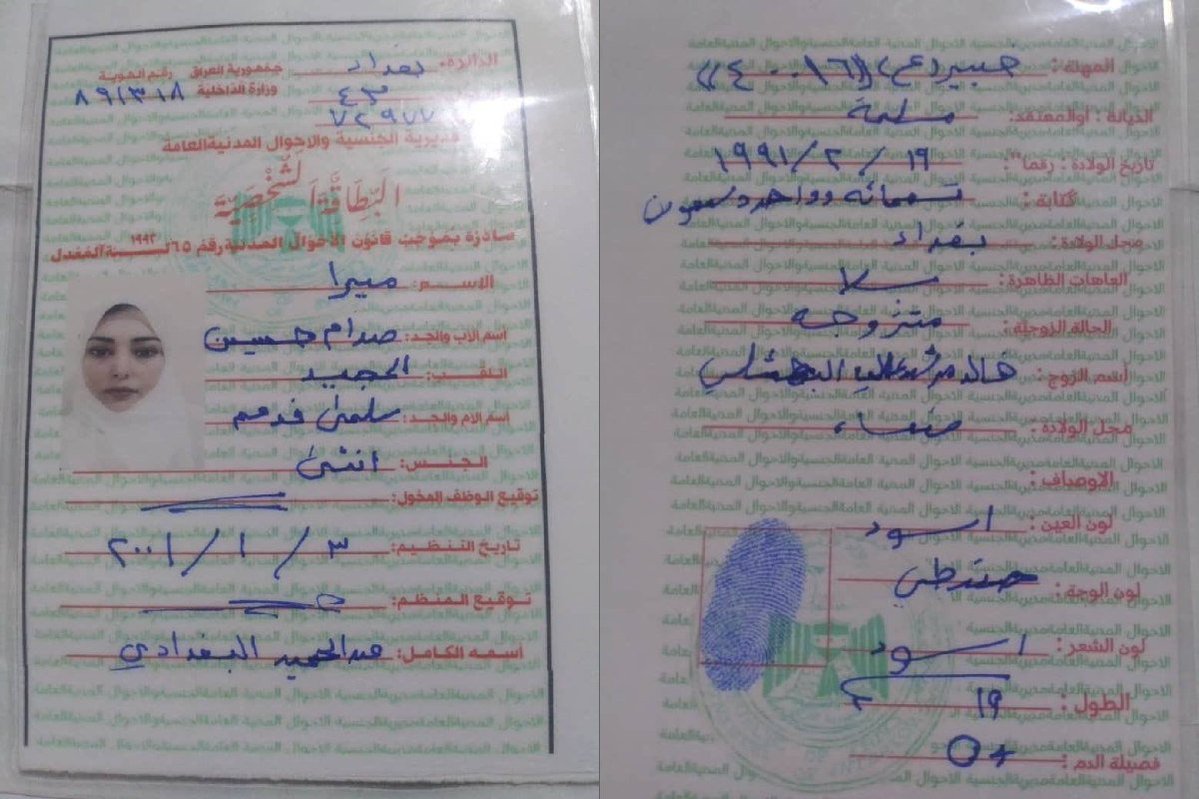 جمهورية العراق
وزارة الداخلية
رقم الهوية
٨٩١٣١٨
الدائرة: بغداد
٤٣
٧٢٩٧٧
مديرية الجنسية والاحوال المدنية العامة
البِطَاقَة الشَّخْصِيَّة
صادرة بموجب قانون الاحوال المدنية رقم ٦٥ لسنة المعدل
الاسم: ميرا
اسم الاب والجد: صدام حسين
اللقب: المجيد
اسم الام والجد: سلمى
الجنس: انثى
توقيع الوظف المخول:
تاريخ التنظيم: ٣ / ١ / ٢٠٠١
توقيع المنظم:
أسمه الكامل: عبدالحميد البغدادي
المهنة:
الديانة: اوالمعتقد: مسلمة
تاريخ الولادة: رقما": ١٩ / ٢ / ١٩٩١
كتابة: تسعمائه وواحد وتسعون
محل الولادة: بغداد
العاهات الظاهرة:
الحالة الزوجية: متزوجه
أسم الزوج: خالد
محل الولادة: صنعاء
الاوصاف:
لون العين: اسود
لون الوجة: حنطي
لون الشعر: اسود
الطول: ١٩
فصيلة الدم: O+